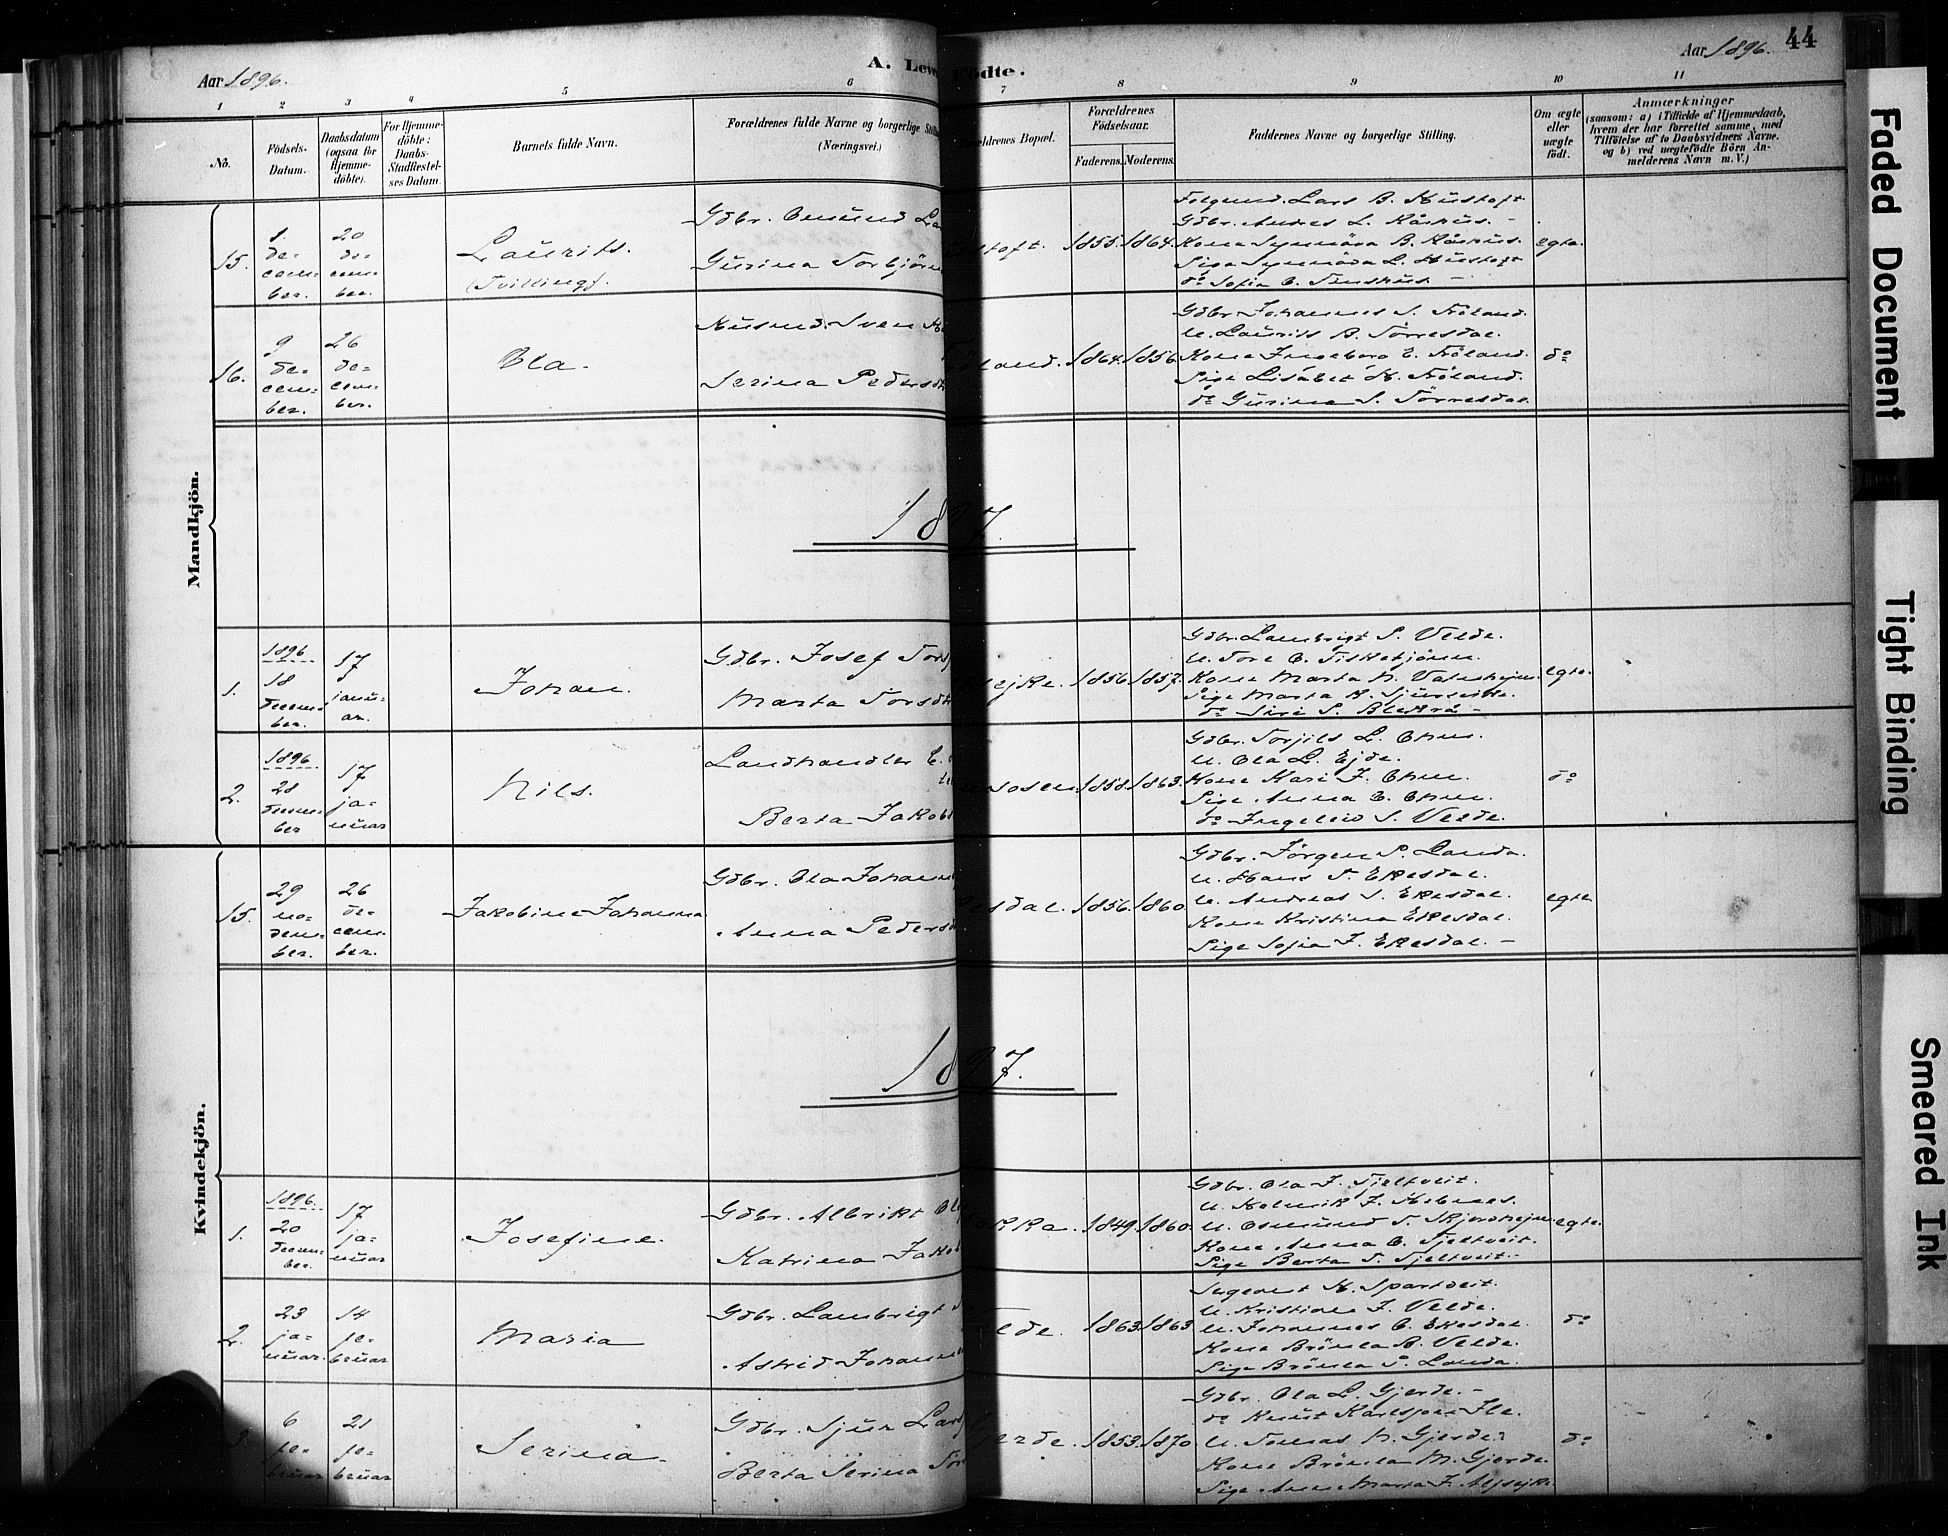 Aar 1896.
A. Leve
Födte.
Aar 1896.
44
1 2 3 4 5 6 7 8 9 10 11
No.
Födsels-
Datum.
Daabsdatum
(ogsaa for
Hjemme-
döbte).
For Hjemme-
döbte:
Daabs-
Stadfæstel-
ses Datum.
Barnets fulde Navn.
Forældrenes fulde Navne og borgerlige Stilling
(Næringsvei.)
ældrenes Bopæl.
Forældrenes
Födselsaar.
Faderens.
Moderens.
Faddernes Navne og borgerlige Stilling.
Om ægte
eller
uægte
födt.
Anmærkninger
(saasom: a) i Tilfælde af Hjemmedaab,
hvem der har forrettet samme, med
Tilföielse af to Daabsvidners Navne.
og b) ved uægtefödte Börn An-
melderens Navn m.V.)
Mandkjön.
15.
1.
de-
cem-
ber.
20
de-
cem-
ber.
Laurits.
(Tvilling).
Gdbr. Omund La
Gurina Torbjörn
stoft.
1855.
1864.
Lars B. Hustoft
Gdbr. Andres L. Råshus.
Kone Synnöva B. Råshus.
Pige Synnöva L. Hustoft
do Sofia
egte.
16.
9
de-
cem-
ber.
26
de-
cem-
ber.
Ola.
Husmd. Sven
Serina Pedersdt
öland.
1864.
1856
Gdbr. Johannes S. Fröland.
U. Laurits A. Törresdal.
Kone Ingeborg E. Fröland.
Pige Lisabet H. Fröland.
do Gurina S. Törresdal.
do
1897.
1.
1896
18
decem-
ber.
17
janu-
ar.
Johan.
Gdbr. Josef Tors
Marta Torsdt
ejke.
1856.
1857.
Gdbr. Lambrigt S. Velde.
U. Tore O. Fisketjönn.
Kone Marta N. Vatshejm.
Pige Marta
do Siri S.
egte.
2.
1896.
28
decem-
ber
17
ja-
nuar
Nils.
Landhandler E.
Berta Jakobs
sosen.
1858.
1863.
Gdbr. Torjils L. Ohm.
U. Ola L. Ejde.
Kone Kari J. Ohm.
Pige Anna E. Ohm.
do Ingeleiv S. Velde.
do
Kvindekjön.
15.
29
no-
vem-
ber.
26
de-
cem-
ber.
Jakobine Johanna
Gdbr. Ola Johann
Anna Pedersd
esdal.
1856.
1860.
Gdbr. Jörgen P. Landa.
U. Hans T. Ekesdal.
U. Andreas S. Ekesdal.
Kone Kristina Ekesdal.
Pige Sofia J. Ekesdal.
egte
1897.
1.
1896.
20
decem-
ber.
17
ja-
nuar
Josefine.
Gdbr. Albrikt Ol
Katrina Jakob
kka.
1849.
1860.
Gdbr. Ola J. Tjeltveit.
U. Kolmik J.
U. Osmund T.
Kone Anna O. Tjeltveit.
Pige Berta T. Tjeltveit.
egte.
2.
23
ja-
nuar.
14
fe-
bruar
Maria
Gdbr. Lambrigt
Astrid Johann
Velde.
1863.
1863
H. Spartveit.
U. Kristian J. Velde.
U. Johannes O. Ekesdal.
Kone Brönla B. Velde.
Pige Brönla P. Landa.
do
3.
6
fe-
bruar
21
fe-
bruar
Serina.
Gdbr. Sjur Lars
Berta Serina Tor
Gjerde.
1853.
1870.
Gdbr. Ola L. Gjerde.
do Knut Karlsson Ile.
U. Tomas N. Gjerde.
Kone Brönla M. Gjerde.
Pige Anne Marta J.
do
Faded Document
Tight Binding
Smeared Ink